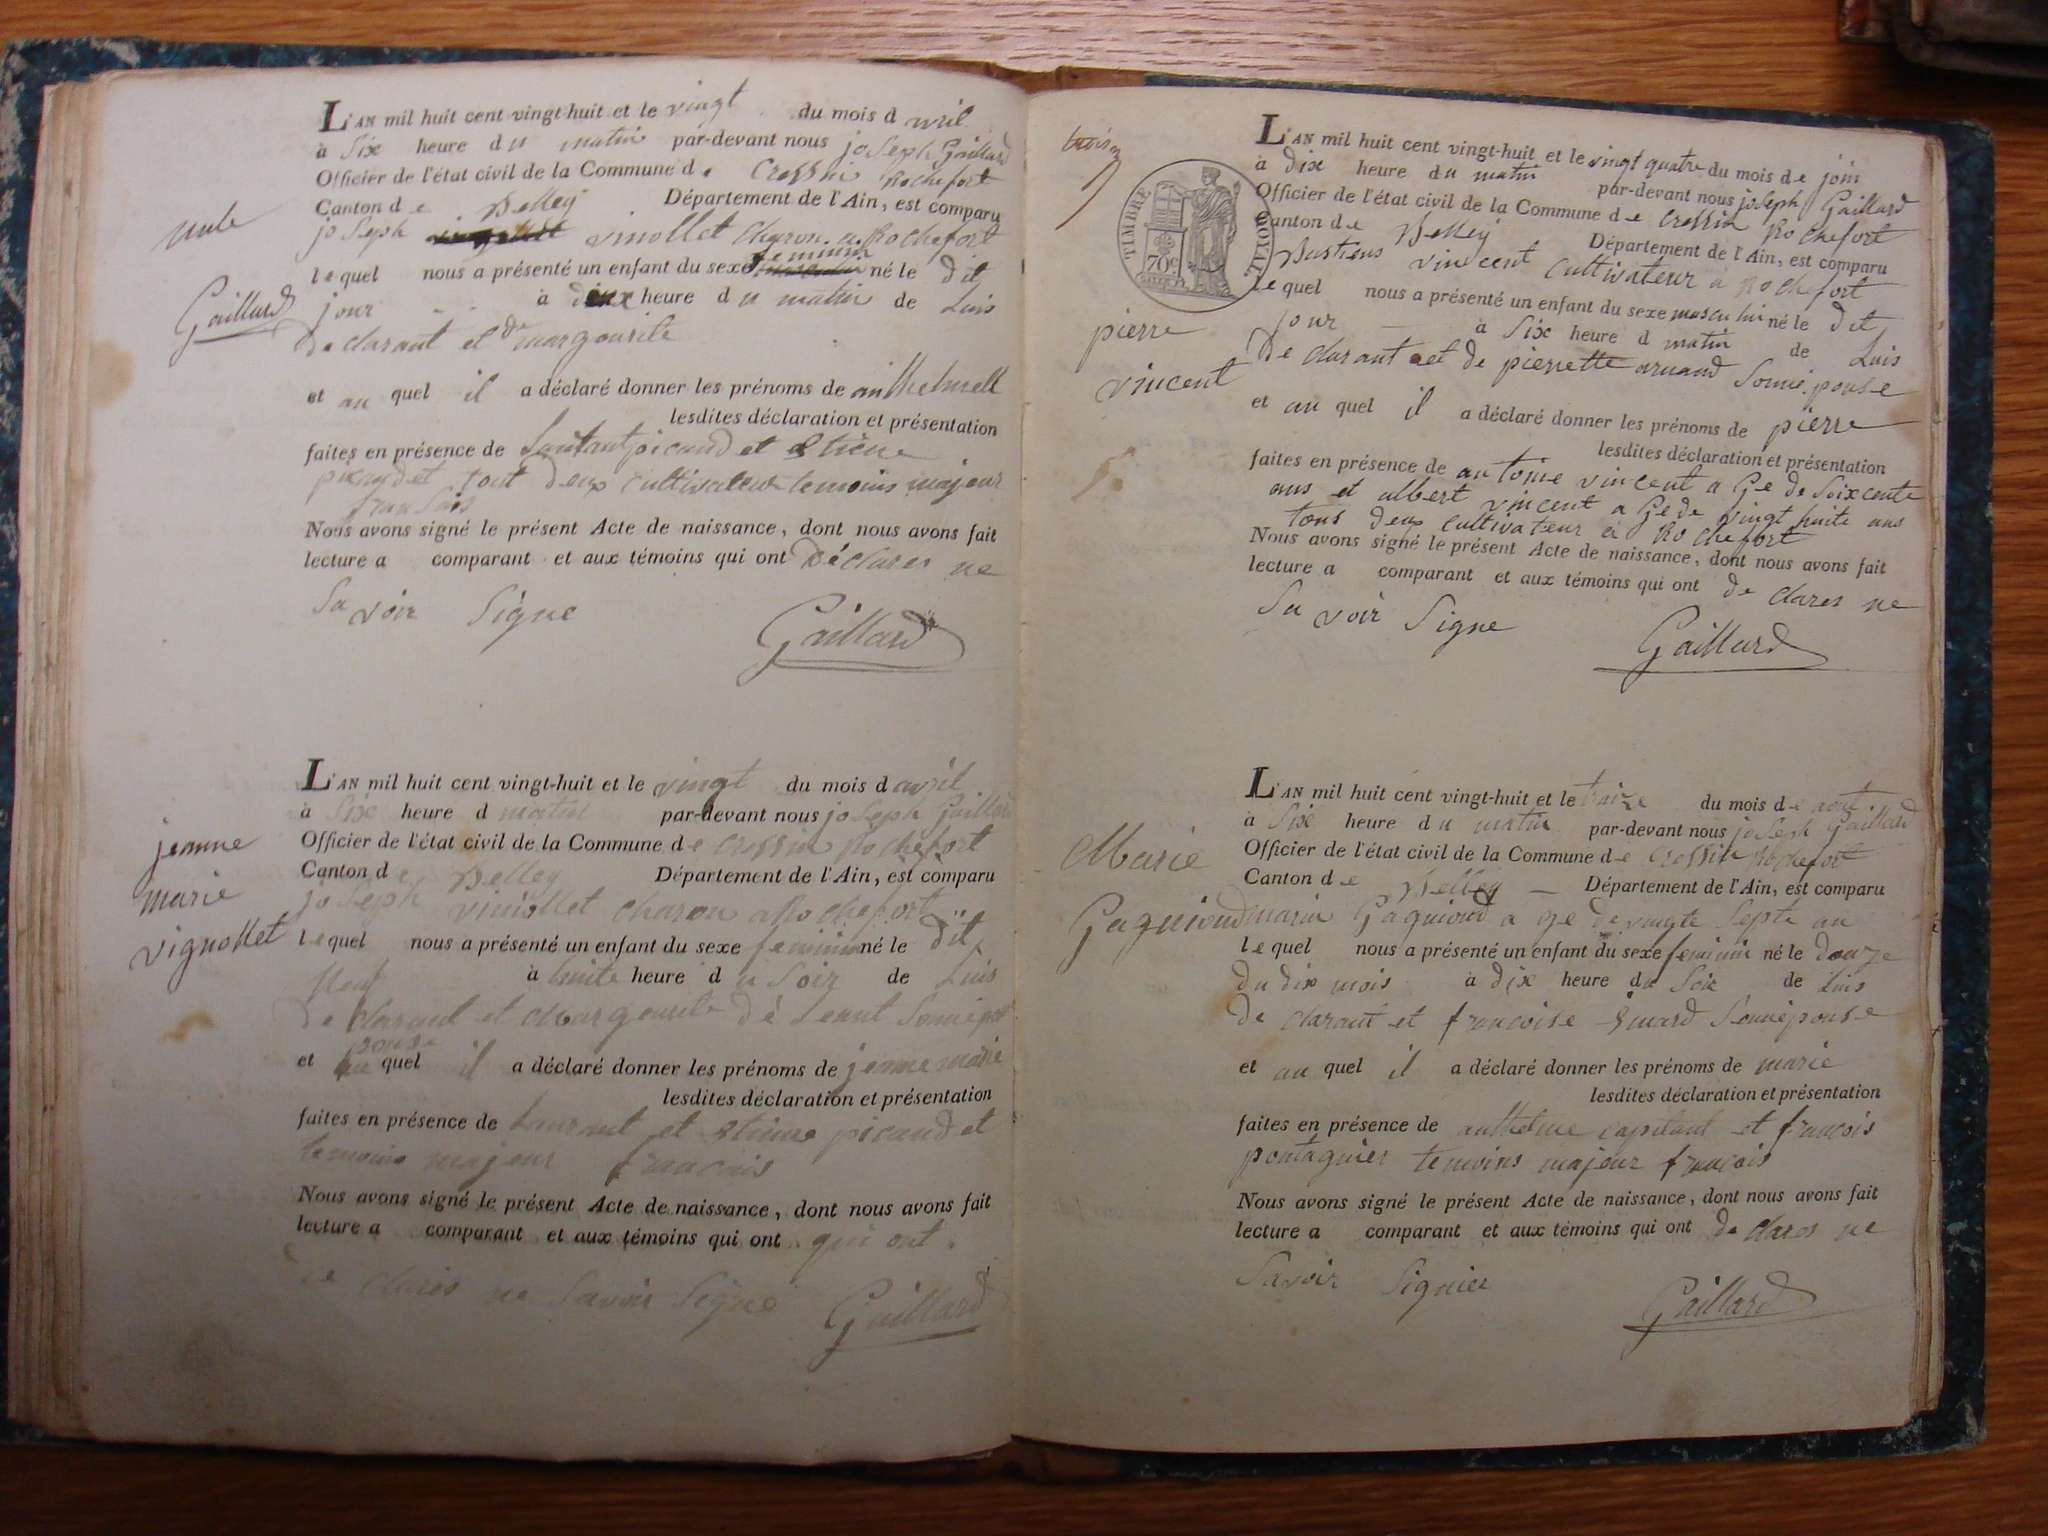 L'AN mil huit cent vingt-huit et le vingt du mois d avril
à Six heure du matin par-devant nous joSeph Gaillard
Officier de l'état civil de la Commune de Cressin Rochefort
Canton de Belley Département de l'Ain, est comparu
joSeph vinollet charon a Rochefort
lequel nous a présenté un enfant du sexe feminin né le dit
jour à deux heure du matin de Luis
declarant et de margourite
nule
Gaillard
et au quel il a déclaré donner les prénoms de anthelmelt
lesdites déclaration et présentation
faites en présence de picaud et Etiene
picaudet tout deux cultivateur temoins majeur
fransais
Nous avons signé le présent Acte de naissance, dont nous avons fait
lecture a comparant et aux témoins qui ont déclares ne
Savoir Signe
Gaillard
L'AN mil huit cent vingt-huit et le vingt du mois d avril
à Six heure d matin par-devant nous joSeph Gaillard
Officier de l'état civil de la Commune de Cressin Rochefort
Canton de Belley Département de l'Ain, est comparu
joSeph viniollet charon a Rochefort
lequel nous a présenté un enfant du sexe feminin né le dit
à huite heure du Soir de Luis
declarant et Margourite
jeanne
marie
vignollet
et au quel il a déclaré donner les prénoms de jeanne marie
lesdites déclaration et présentation
faites en présence de Laurant et etiene picaudet
temoins majeur francais
Nous avons signé le présent Acte de naissance, dont nous avons fait
lecture a comparant et aux témoins qui ont qui ont
de clares ne Savoir Signe
Gaillard
TIMBRE ROYAL
70c
L'AN mil huit cent vingt-huit et le vingt quatre du mois de join
à dix heure du matin par-devant nous joSeph Gaillard
Officier de l'état civil de la Commune de Cressin Rochefort
Canton de Belley Département de l'Ain, est comparu
Bastiens vincent cultivateur a Rochefort
Lequel nous a présenté un enfant du sexe masculin né le dit
jour à Six heure d matin de Luis
De clarant et de pierrette arnaud Sonnépouse
pierre
vincent
et au quel il a déclaré donner les prénoms de pierre
lesdites déclaration et présentation
faites en présence de antoine vincent a Ge de Soixcente
ans et albert vincent a Ge de vingt huite ans
tous deux cultivateur a Rochefort
Nous avons signé le présent Acte de naissance, dont nous avons fait
lecture a comparant et aux témoins qui ont de clares ne
Sa voir Signe
Gaillard
L'AN mil huit cent vingt-huit et le traize du mois de aout
à Six heure du matin par-devant nous joSeph Gaillard
Officier de l'état civil de la Commune de Cressin Rochefort
Canton de Belley Département de l'Ain, est comparu
marin Gaguioud a ge de vingte Septe an
lequel nous a présenté un enfant du sexe feminin né le douze
du dix mois à dix heure du Soir de Luis
De clarant et francoise Sonnépouse
Marie
Gaguioud
et au quel il a déclaré donner les prénoms de marie
lesdites déclaration et présentation
faites en présence de anthelme capitant et francois
pontagnier temoins majeur francois
Nous avons signé le présent Acte de naissance, dont nous avons fait
lecture a comparant et aux témoins qui ont de clares ne
Savoir Signier
Gaillard